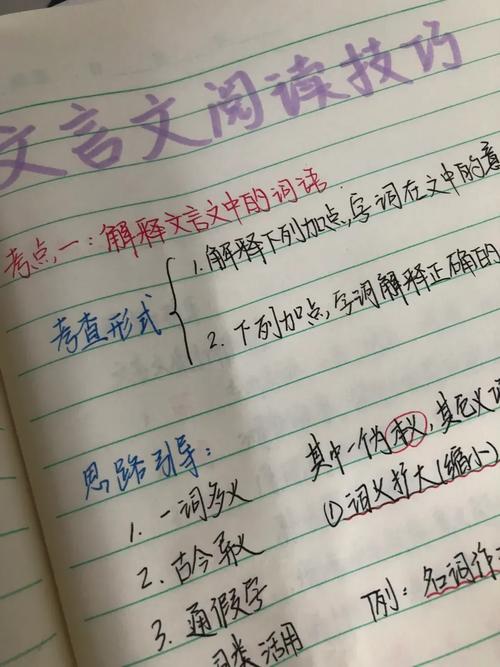 文言文阅读技巧
考点一：解释文言文中的词语
考查形式
1. 解释下列加点字词在文中的意
2. 下列加点字词解释正确的
思路引导：
1. 一词多义 其中一个为本义，其它义
2. 古今异义 ①词义扩大(缩小)
3. 通假字 下列：名词作
词类活用